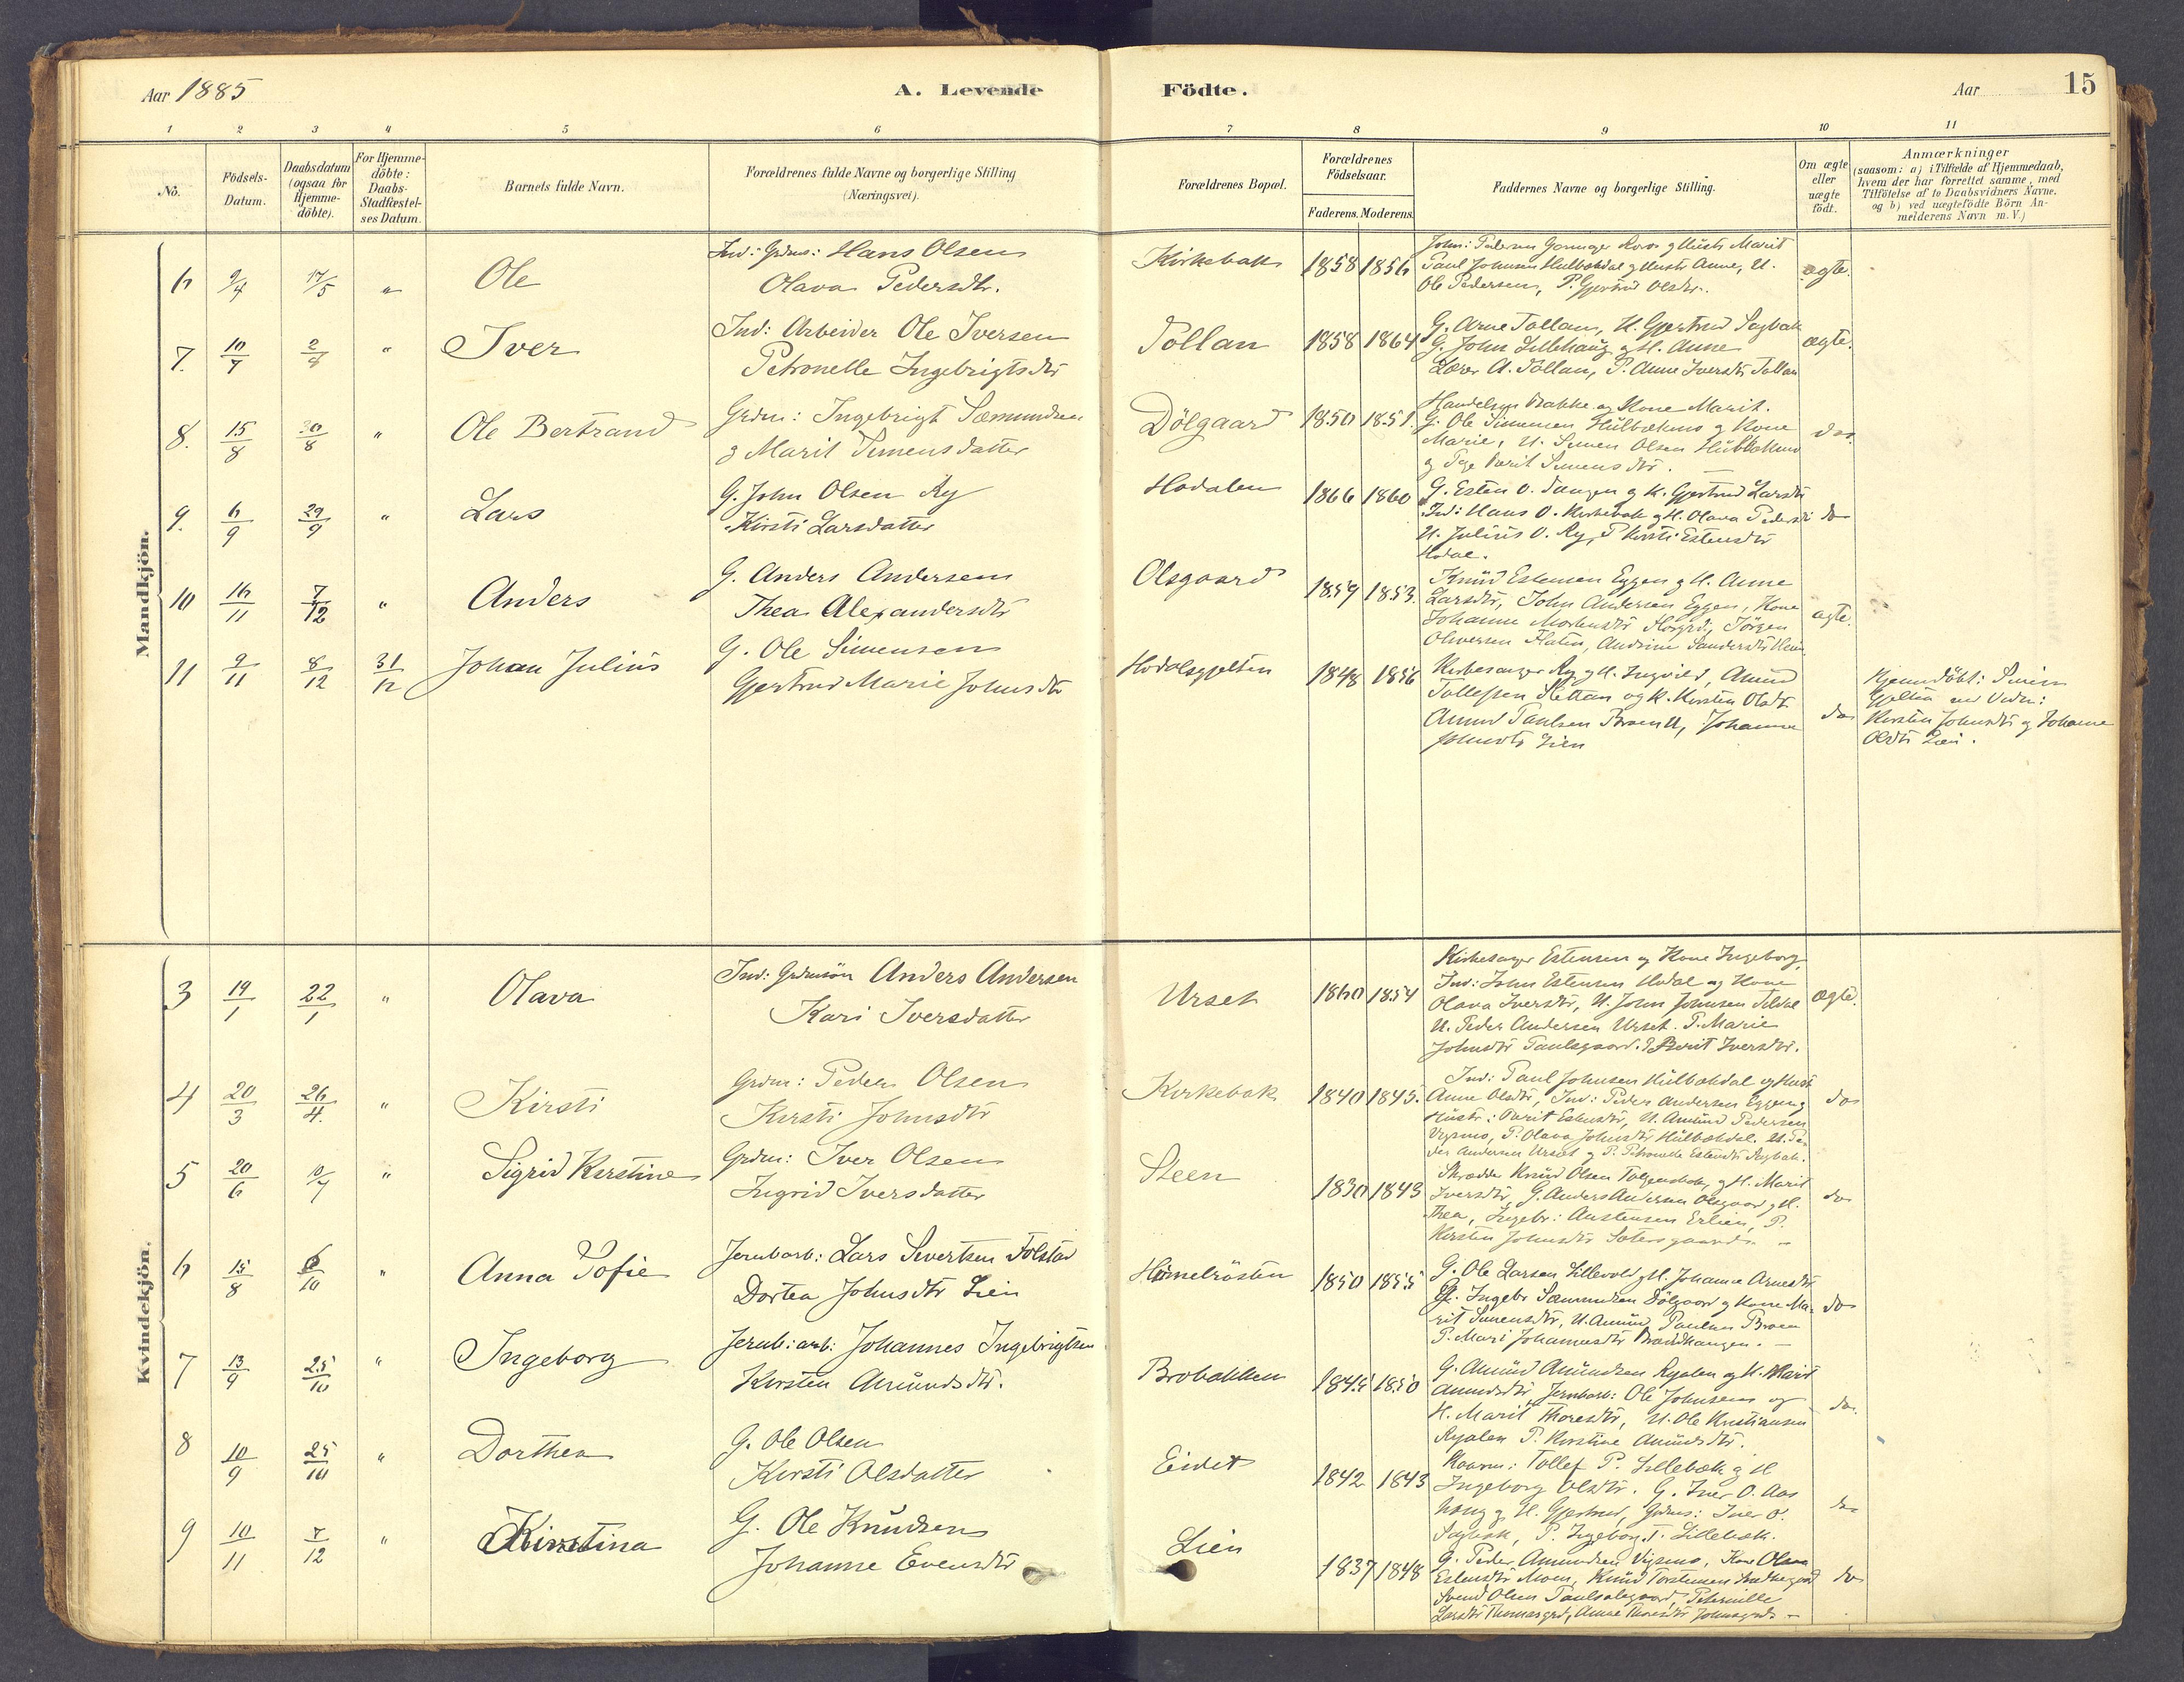 Aar 1885
A. Levende
Födte.
Aar
15
1 2 3 4 5 6 7 8 9 10 11
No.
Födsels-
Datum.
Daabsdatum
(ogsaa for
Hjemme-
döbte).
For Hjemme-
döbte:
Daabs-
Stadfæstel-
ses Datum.
Barnets fulde Navn.
Forældrenes fulde Navne og borgerlige Stilling
(Næringsvei).
Forældrenes Bopæl.
Forældrenes
Födselsaar.
Faderens. Moderens.
Faddernes Navne og borgerlige Stilling.
Om ægte
eller
uægte
födt.
Anmærkninger
(saasom: a) i Tilfælde af Hjemmedaab,
hvem der har forrettet samme, med
Tilföielse af to Daabsvidners Navne.
og b) ved uægtefödte Börn An-
melderens Navn m.V.)
Mandkjön.
6 9/4 17/5 " Ole
Ind: Grdms: Hans Olsen
Olava Pedersdtr.
Kirkebak 1858 1856
Paul Johnsen Hulbækdal og Hustr Anne, U.
Ole Pedersen, P. Gjertrud Olsdtr.
ægte.
7. 10/7 2/8 " Iver
Ind: Arbeider Ole Iversen
Petronelle Ingebrigtsdtr
Tollan 1858 1864
G. Arne Tollan, H. Gjertrud Sagbak
G. John Lillehaug og H. Anne
Lærer A. Tollan, P. Anne Iversdtr Tollan
ægte.
8. 15/8 30/8 " Ole Bertrand
Grdm: Ingebrigt Sæmundsen
og Marit Simensdatter
Dölgaard 1850 1851.
Handelsm Bakke og Kone Marit.
G. Ole Simensen Hulbækmo og Kone
Marie, U. Simen Olsen Hulbækmo
og Pige Berit Simensdtr.
do.
9. 6/9 29/9 " Lars
G. John Olsen Ry
Kirsti Larsdatter
Hodalen 1866 1860
G. Esten O. Tangen og K. Gjertrud Larsdtr
Ind: Hans O. Kirkebak og H. Olava Pedersdtr
U. Julius O. Ry, P Kirsti Estensdtr
Hodal.
do
10 16/11 7/12 " Anders
G. Anders Andersen
Thea Alexandersdtr
Olsgaard 1859 1853.
Knud Estensen Eggen og H. Anne
Larsdtr, John Andersen Eggen, Kone
Johanne Mortensdtr Jörgen
Oliversen Andrine Sandersdtr
ægte.
11 9/11 8/12 31/12 Johan Julius
G. Ole Simensen
Gjertrud Marie Johnsdtr
Hodalsgjelten 1848 1856
Kirkesanger Ry og H. Ingvild, Amund
Tollefsen Slettan og K. Kirsten Olsdtr
Amund Paulsen Broen U, Johanne
Johnsdtr Lien
do
Hjemmedöbt: Simen
Gjelten med Vidn:
Kirsten Johnsdtr og Johanne
Olsdtr Lien.
Kvindekjön.
3 19/1 22/1 " Olava
Ind: Grdmsön Anders Andersen
Kari Iversdatter
Urset 1860 1854
Kirkesanger Estensen og Kone Ingeborg,
Ind: John Estensen Hodal og Kone
Olava Iversdtr, U. John Johnsen
U. Peder Andersen Urset. P. Marie
Johnsdtr Paulsgaard. P Berit Iversdtr.
ægte.
4 20/3 26/4. " Kirsti
Grdm: Peder Olsen
Kirsti Johnsdtr
Kirkebak 1840 1845.
Ind: Paul Johnsen Hulbækdal og Hust
Anne Olsdtr, Ind: Peder Andersen Eggen og
Hustr: Berit Estensdtr, U. Amund Pedersen
Vegmo, P. Olava Johnsdtr Hulbækdal. U. Pe-
der Andersen Urset og P. Petronelle Estensdtr Sagbak.
do
5 20/6 10/7 " Sigrid Kirstine
Grdm: Iver Olsen
Ingrid Iversdatter
Steen 1830 1843
Skrædder Knud Olsen og H. Marit
Iversdtr, G. Anders Andersen Olsgaard og H.
Thea, Ingebr: Austensen Erlien, P.
Kirsten Johnsdtr Sætersgaard. –
do
6 15/8 6/10 " Anna Sofie
Jernbarb: Lars Sivertsen Tolstad
Dortea Johnsdtr Lien
Hömelrösten 1850 1855
G. Ole Larsen Lillevold og H. Johanne Arnesdtr
G. Ingebr Sæmundsen Dölgaard og Kone Ma-
rit Simensdtr, U. Amund Paulsen Broen
P. Mari Johannesdtr Brændhaugen. –
do
7 13/9 25/10 " Ingeborg
Jernb: arb: Johannes Ingebrigtsen
Kirsten Amundsdtr.
Brobakken 1845 1850
G. Amund Amundsen Ryalen og H. Marit
Amundsdtr, Jernbarb: Ole Johnsen og
H. Marit Thoresdtr, U. Ole Kristiansen
Ryalen P. Kirstine Amundsdtr.
do.
8 10/9 25/10 " Dorthea
G. Ole Olsen
Kirsti Olsdatter
Eidet 1842 1843
Tollef P. Lillebæk og H
Ingeborg Olsdtr. G. Iver O. Aas
haug og H. Gjertrud, Grdms: Iver O.
Sagbak, P. Ingeborg T. Lillebæk.
do
9 10/11 7/12 " Kirstina
G. Ole Knudsen
Johanne Evensdtr
Lien 1837 1848
G. Peder Amundsen Vigmo, Kone Olava
Estensdtr Moen, Knud Torstensen
Svend Olsen Peternille
Larsdtr Thomasgrd, Anne Thoresdtr Johnsgrd. –
do